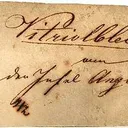 Vitriolblei
von
der Insel Ang